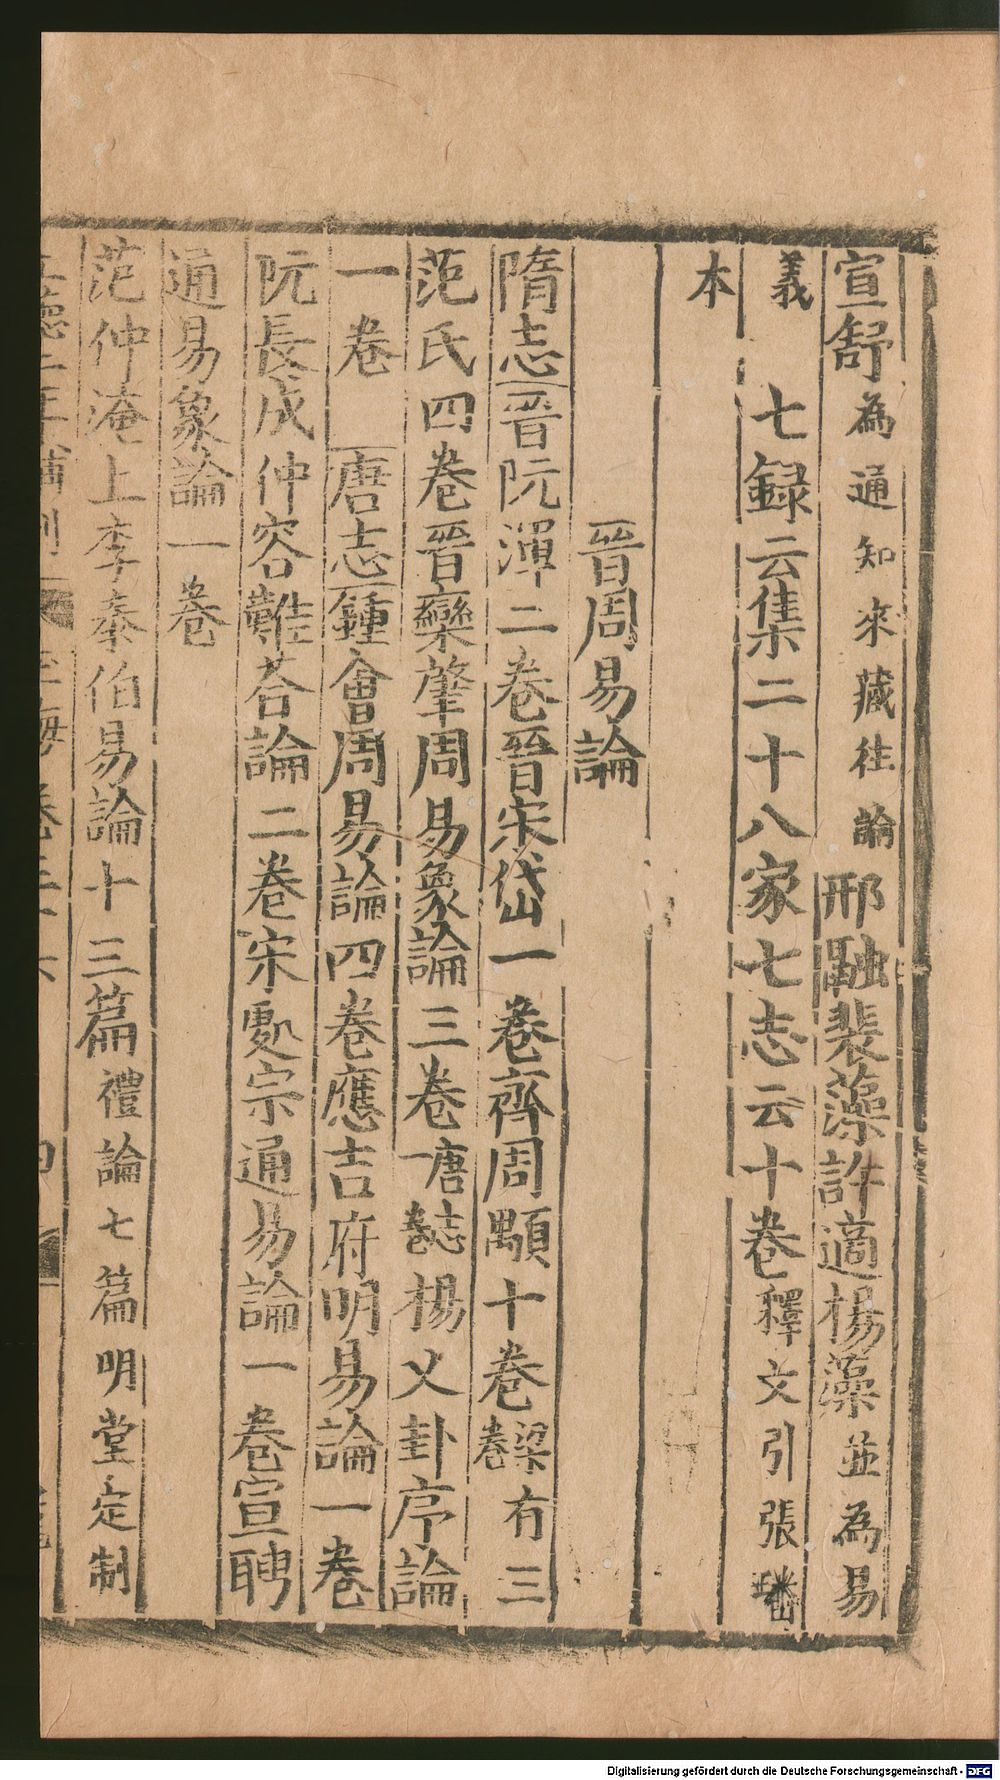 宣舒為通知來藏往論邢融裴藻許適楊藻並為易
義　七録云集二十八家七志云十卷釋文引張璠
本
晉周易論
隋志晉阮渾二卷晉宋岱一卷齊周顒十卷梁有三卷
范氏四卷晉欒肇周易象論三卷唐志一卷楊乂卦序論
一卷　唐志鍾會周易論四卷應吉府明易論一卷
阮長成仲容難荅論二卷宋處宗通易論一卷宣聘
通易象論一卷
范仲淹上李泰伯易論十三篇禮論七篇明堂定制
Digitalisierung gefördert durch die Deutsche Forschungsgemeinschaft - DFG